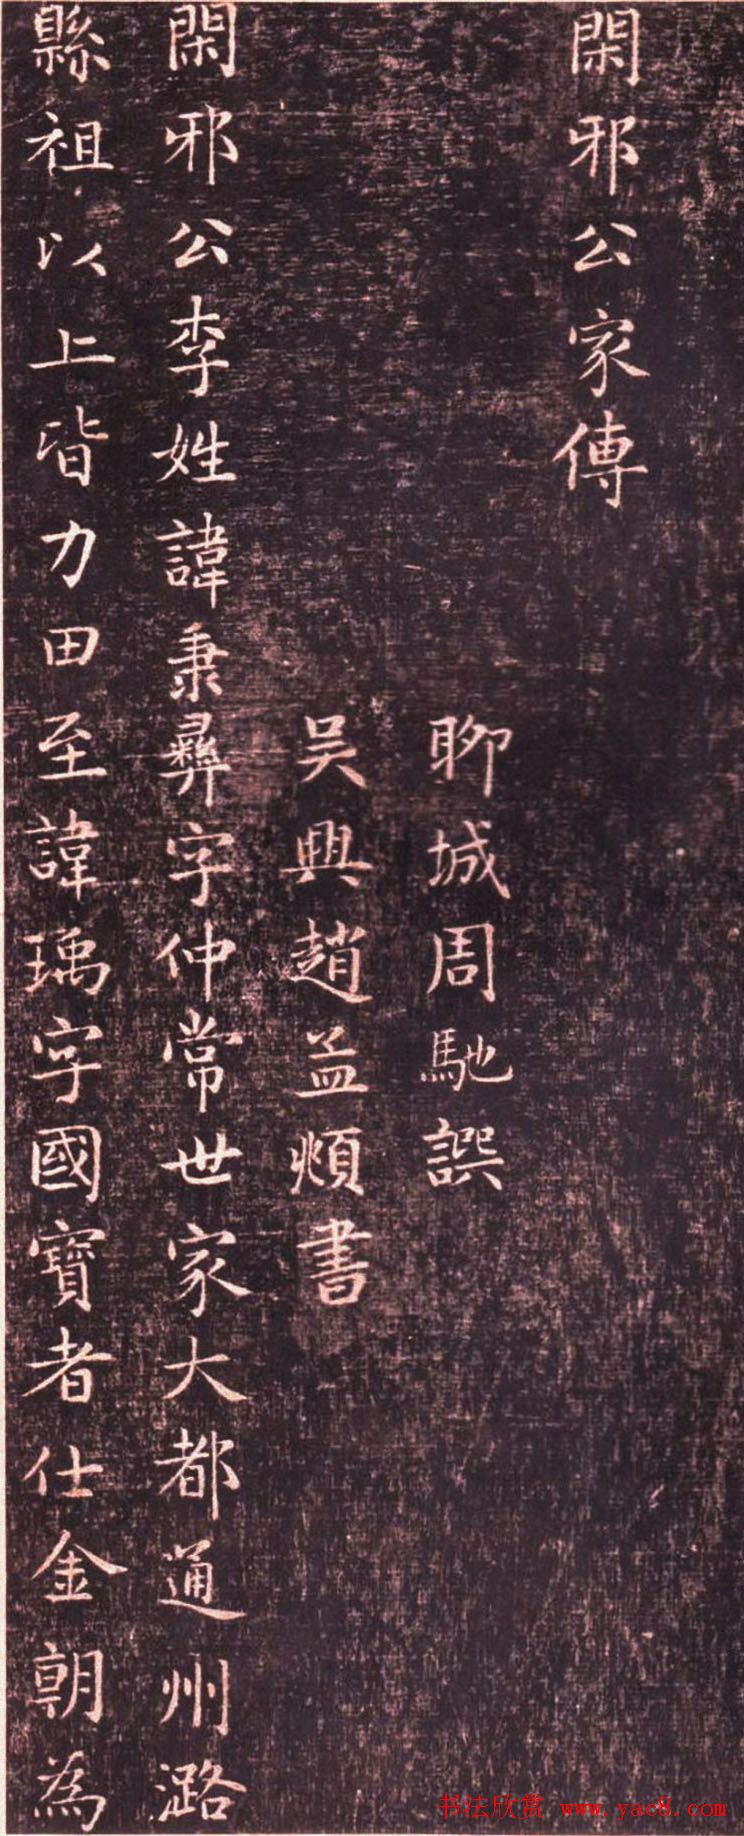 閑邪公家傳
聊城周馳譔
吴興趙孟頫書
閑邪公李姓諱秉彞字仲常世家大都通州潞
縣祖以上皆力田至諱瑀字國寶者仕金朝為
书法欣赏 www.yac8.com